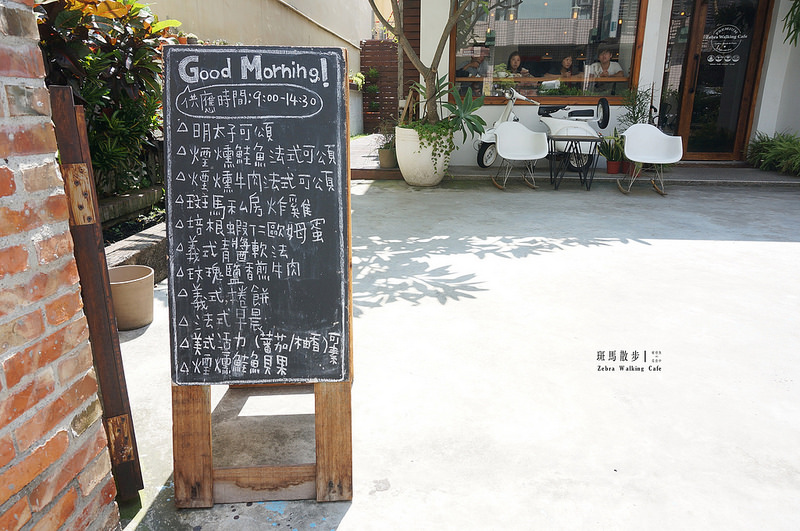 Good Morning!
供應時間:9:00-14:30
△明太子可頌
△煙燻鮭魚法式可頌
△煙燻牛肉法式可頌
△斑馬私房炸雞
△培根蝦仁歐姆蛋
△義式青醬軟法
△玫瑰鹽香煎牛肉
△義式捲餅
△法式早晨
△美式活力(蕃茄/柚香)可素
△煙燻鮭魚貝果
Zebra Walking Cafe
斑馬散步
Zebra Walking Cafe